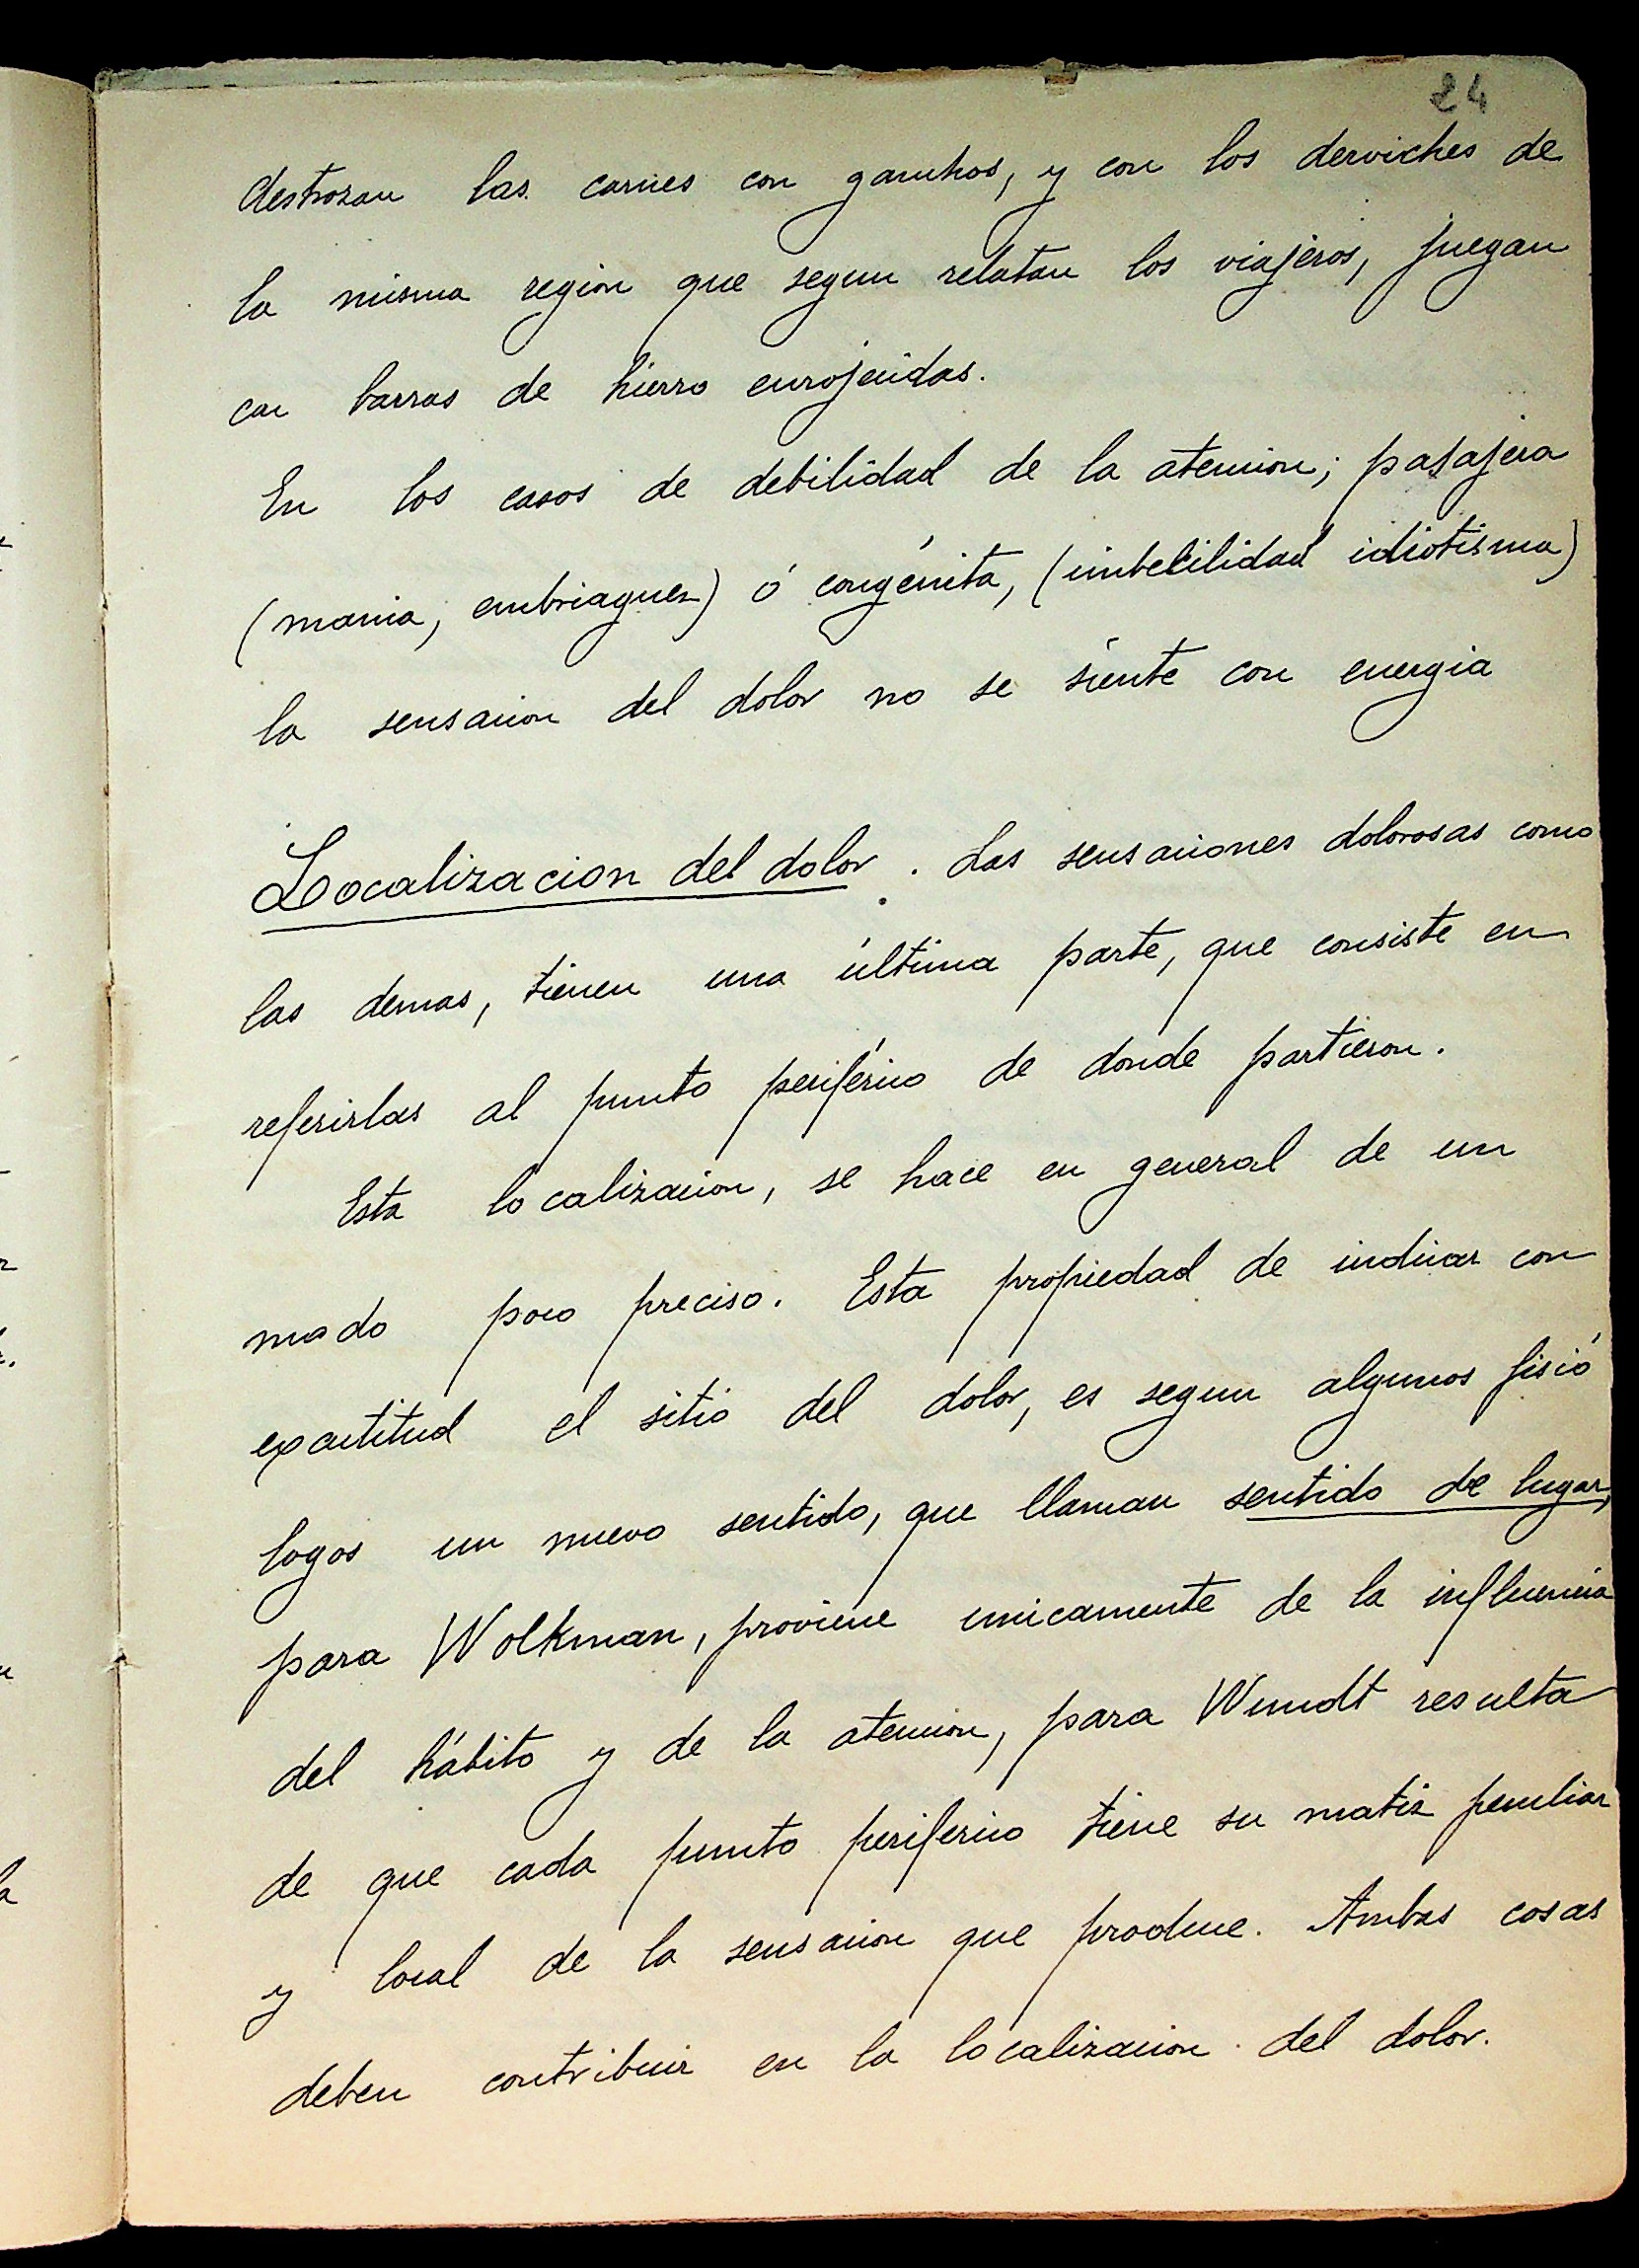 24
destrozan las carnes con ganchos, y con los derviches de
la misma region que segun relatan los viajeros, juegan
con barras de hierro enrojecidas.
En los casos de debilidad de la atencion; pasajera
(mania, embriaguez) ó congénita, (imbecilidad idiotismo)
la sensacion del dolor no se siente con energia
Localizacion del dolor. Las sensaciones dolorosas como
las demas, tienen una última parte, que consiste en
referirlas al punto periférico de donde partieron.
Esta localizacion, se hace en general de un
modo poco preciso. Esta propiedad de indicar con
exactitud el sitio del dolor, es segun algunos fisió
logos un nuevo sentido, que llaman sentido de lugar,
para Wolkman, proviene unicamente de la influencia
del hábito y de la atencion, para Wundt resulta
de que cada punto periferico tiene su matiz peculiar
y local de la sensacion que produce. Ambas cosas
deben contribuir en la localizacion del dolor.